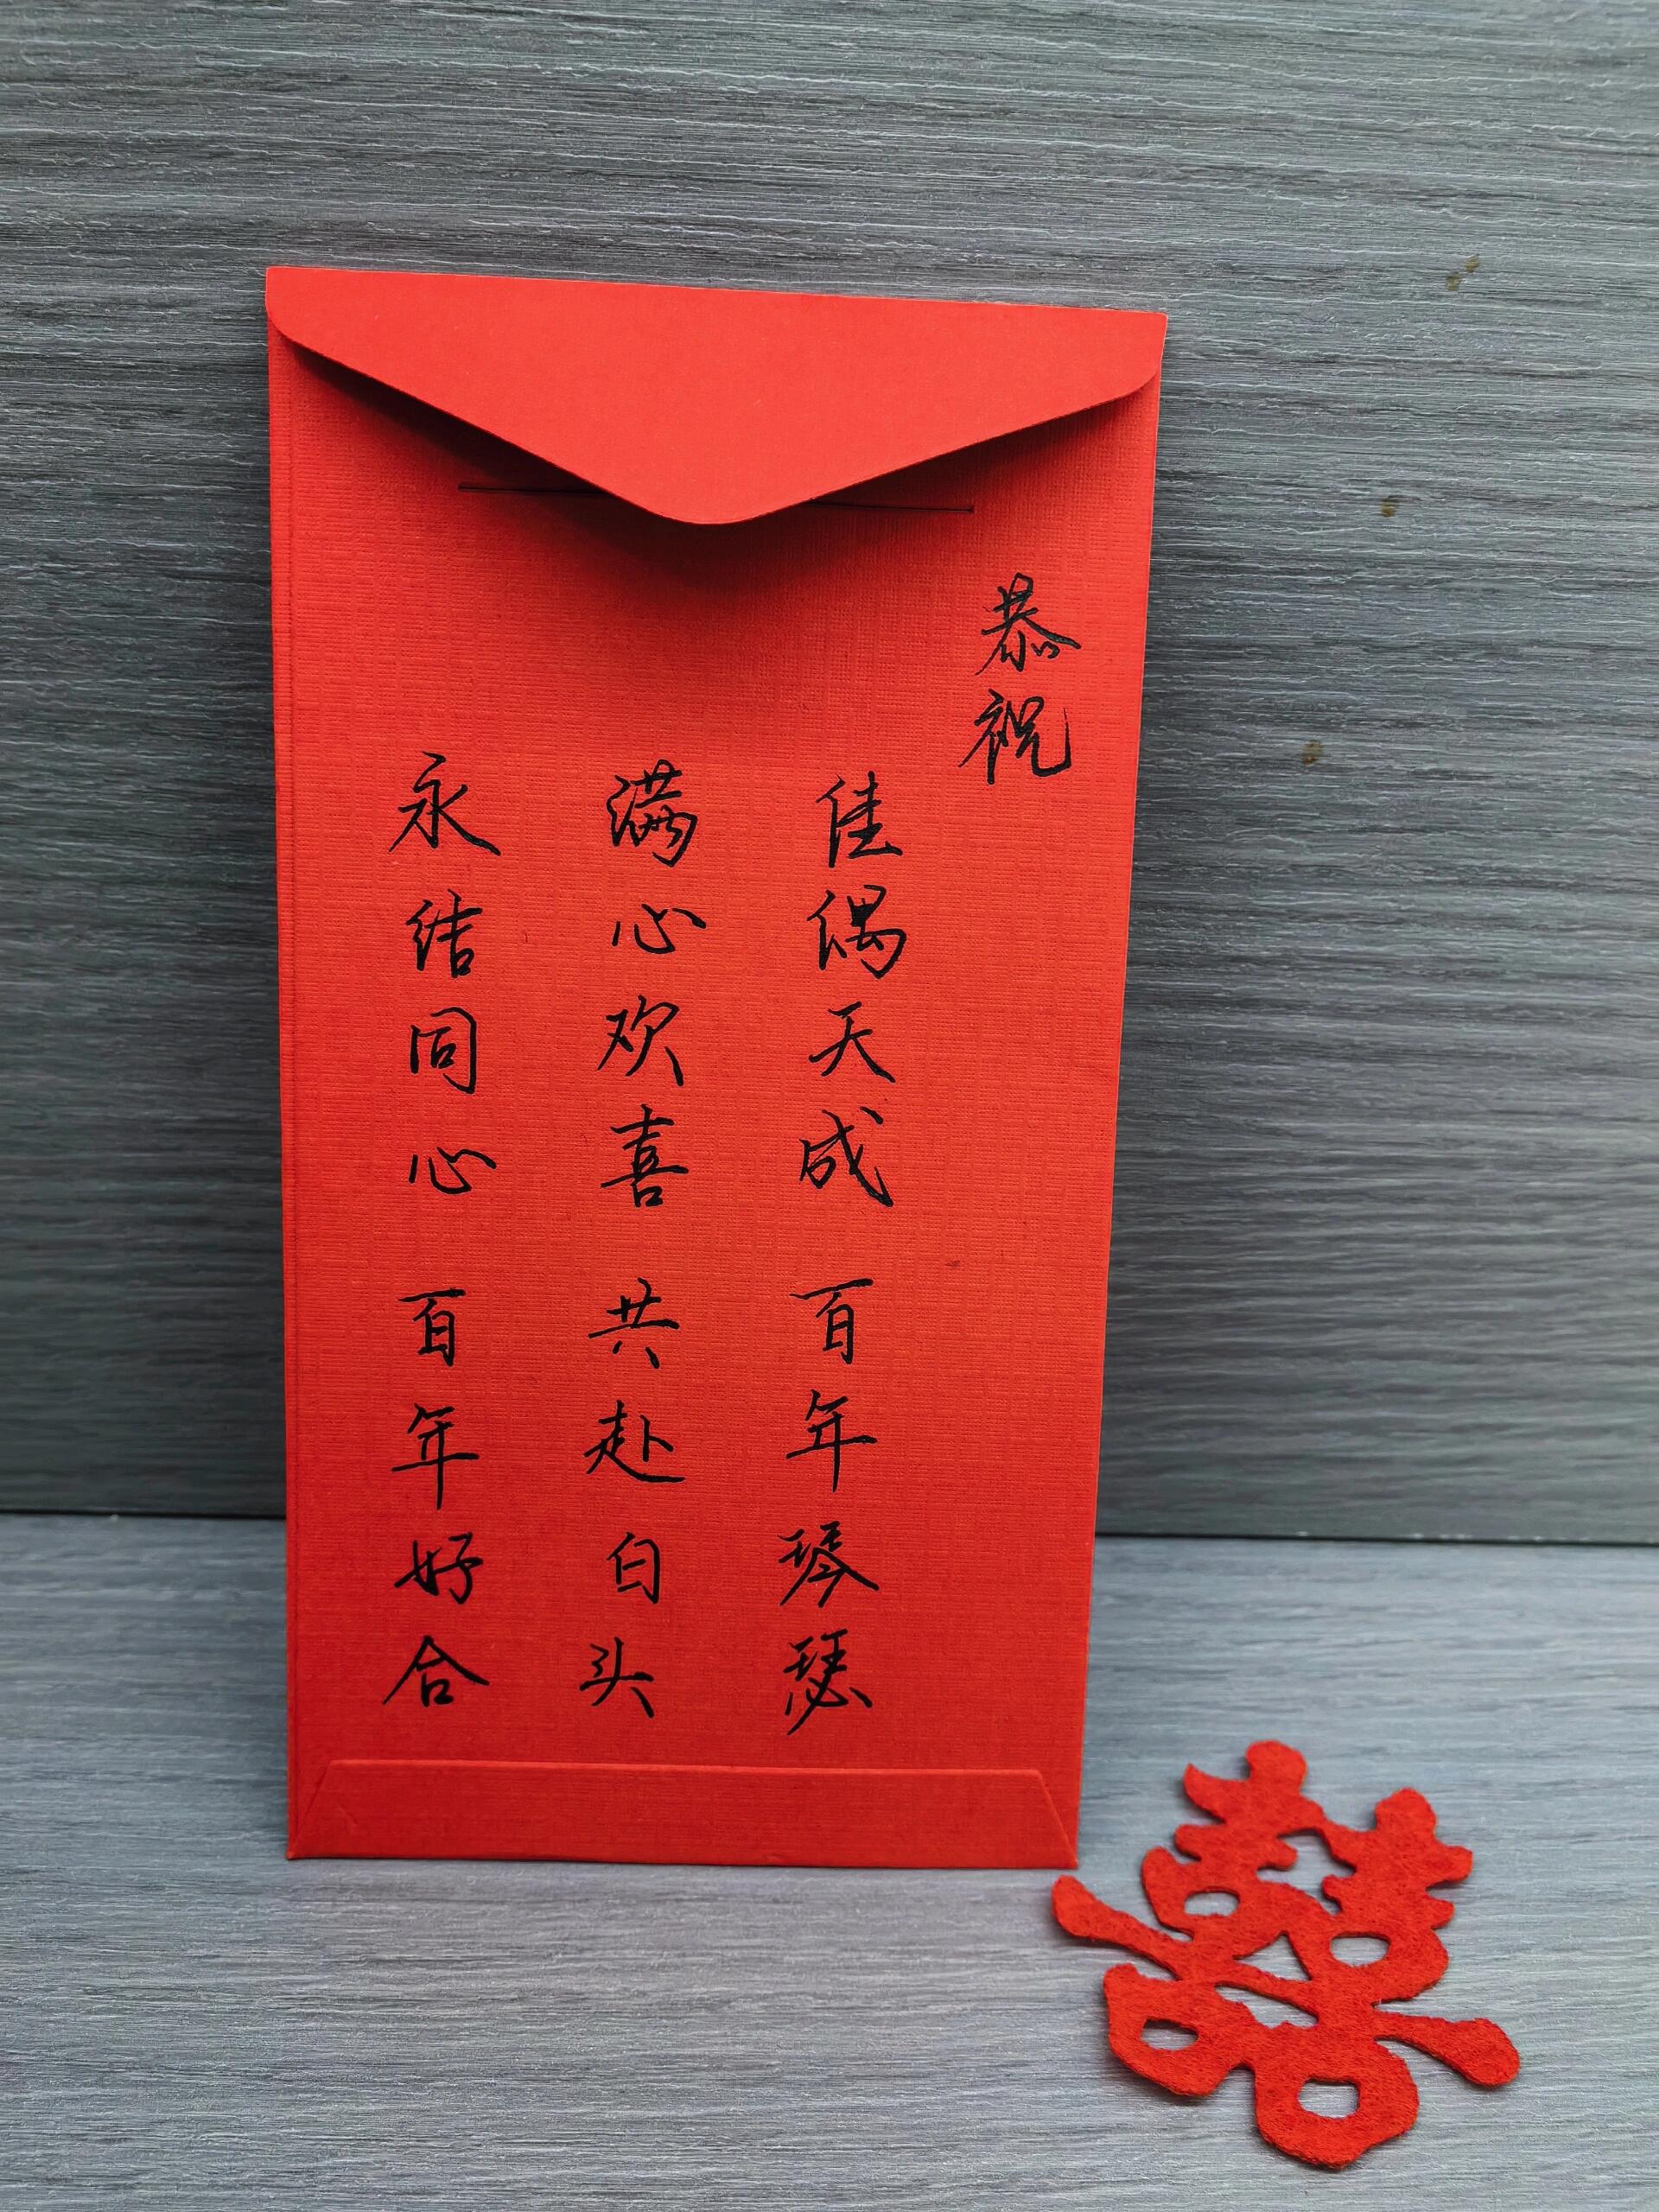 恭祝
佳偶天成 百年琴瑟
满心欢喜 共赴白头
永结同心 百年好合
囍